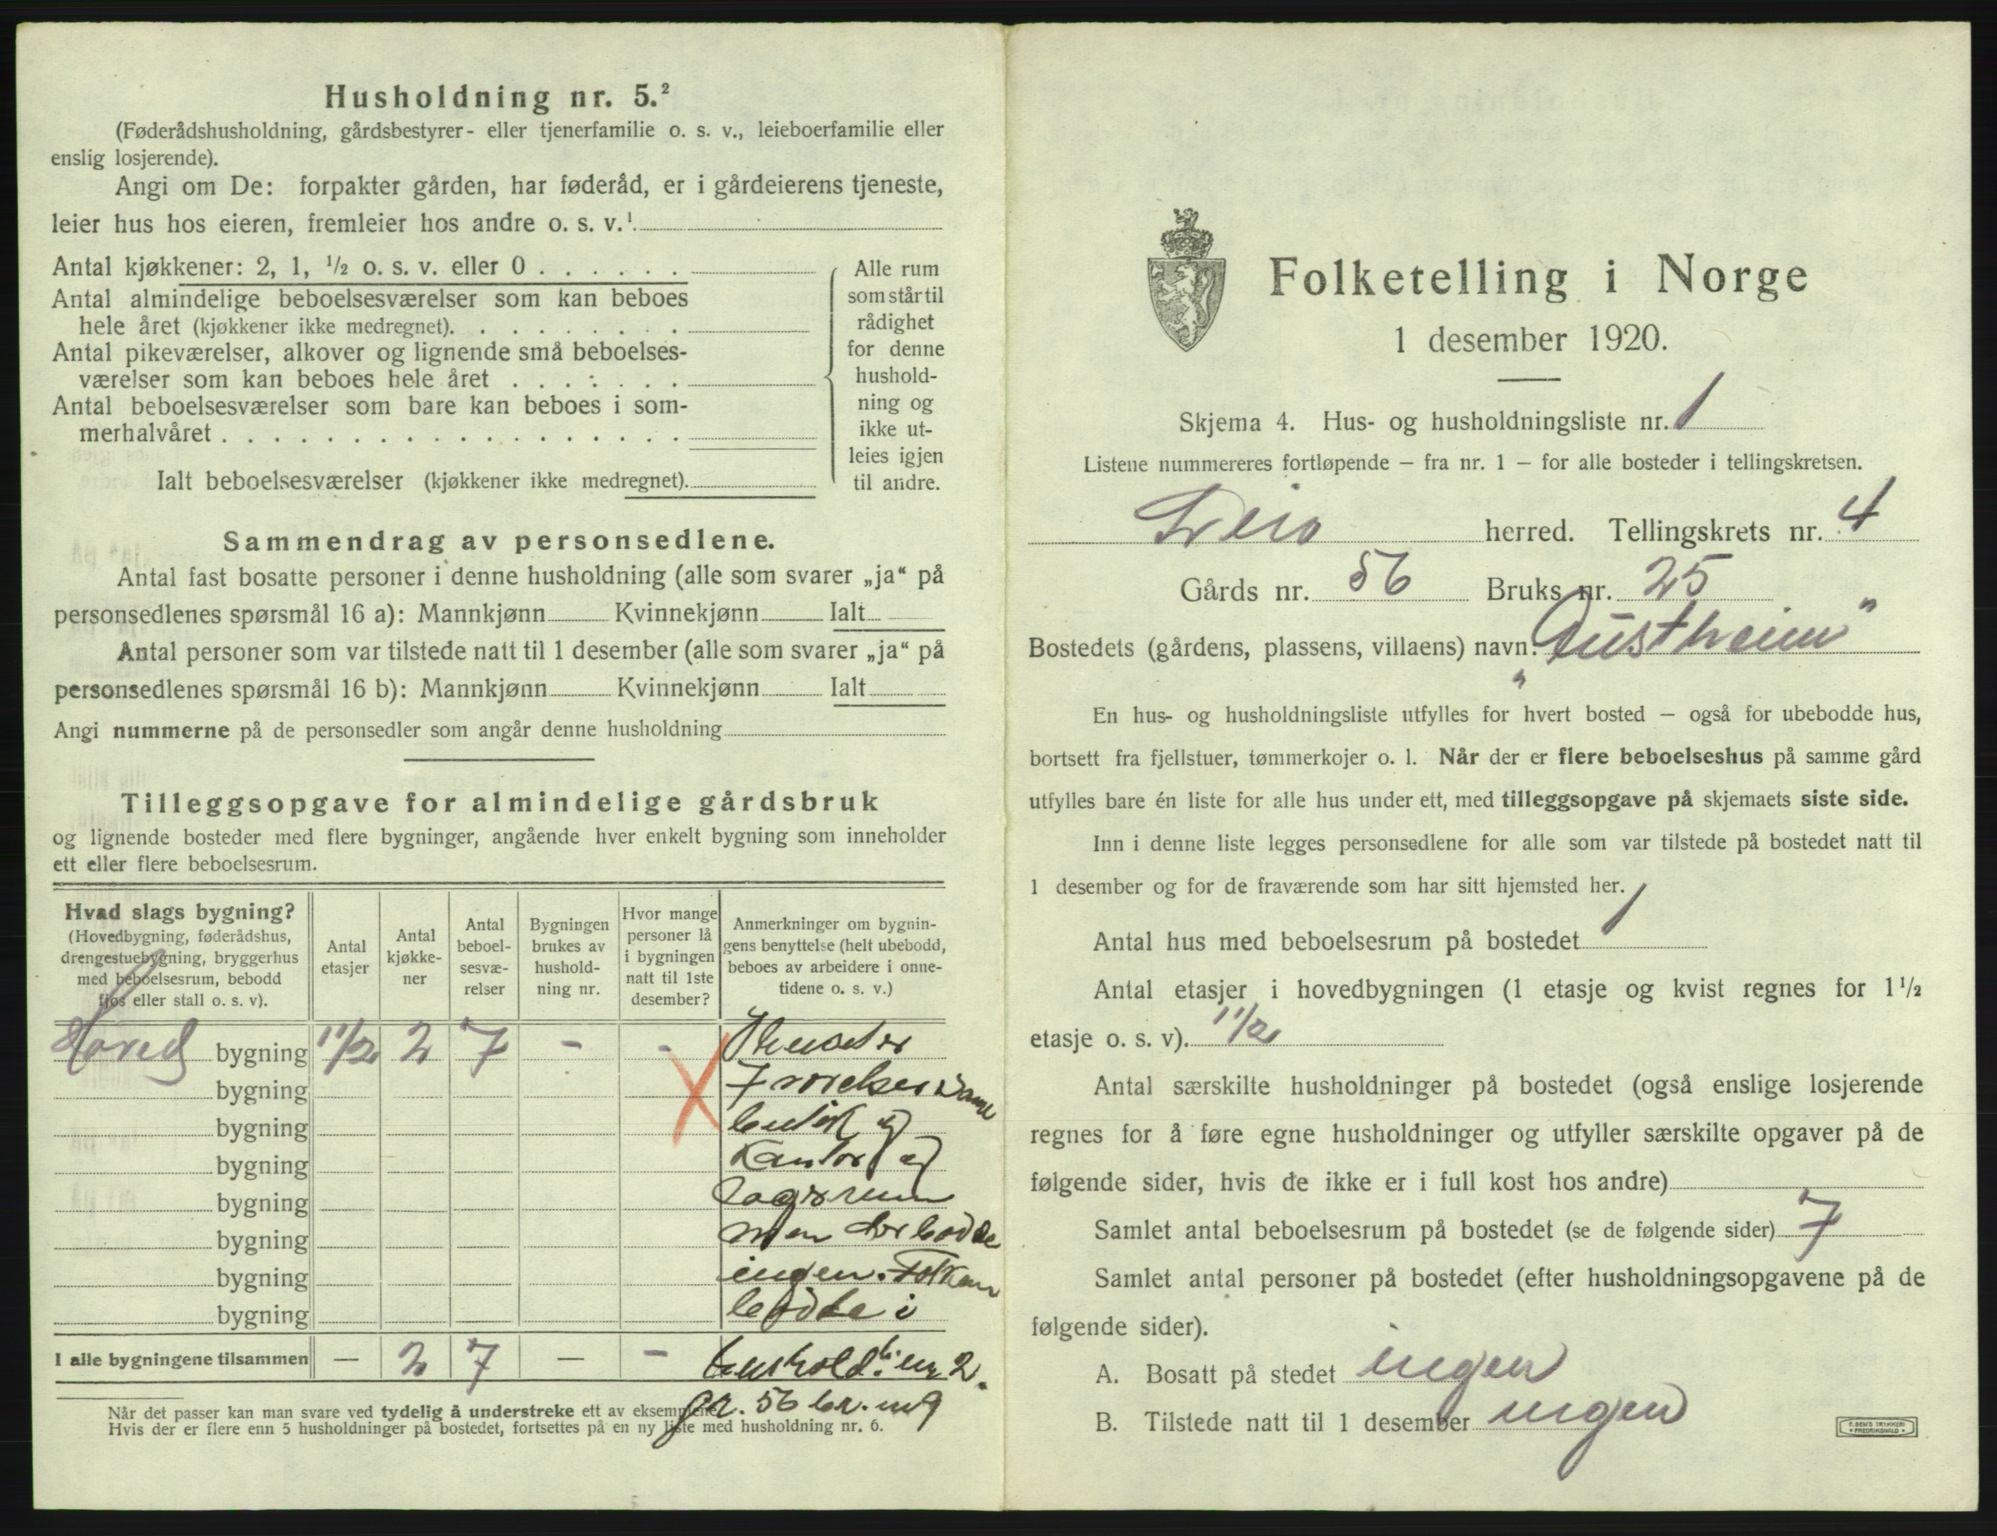 Husholdning nr. 5.²
(Føderådshusholdning, gårdsbestyrer- eller tjenerfamilie o. s. v., leieboerfamilie eller
enslig losjerende).
Angi om De: forpakter gården, har føderåd, er i gårdeierens tjeneste,
leier hus hos eieren, fremleier hos andre o. s. v.¹
Antal kjøkkener: 2, 1, ½ o. s. v. eller 0 . . . . . .
Antal almindelige beboelsesværelser som kan beboes
hele året (kjøkkener ikke medregnet). . . . . . . . .
Antal pikeværelser, alkover og lignende små beboelses-
værelser som kan beboes hele året . . . . . . .
Antal beboelsesværelser som bare kan beboes i som-
merhalvåret . . . . . . . . . . . . . . . . .
Ialt beboelsesværelser (kjøkkener ikke medregnet).
Alle rum
som står til
rådighet
for denne
hushold-
ning og
ikke ut-
leies igjen
til andre.
Sammendrag av personsedlene.
Antal fast bosatte personer i denne husholdning (alle som svarer „ja“ på
personsedlenes spørsmål 16 a): Mannkjønn Kvinnekjønn Ialt
Antal personer som var tilstede natt til 1 desember (alle som svarer „ja“ på
personsedlenes spørsmål 16 b): Mannkjønn Kvinnekjønn Ialt
Angi nummerne på de personsedler som angår denne husholdning
Tilleggsopgave for almindelige gårdsbruk
og lignende bosteder med flere bygninger, angående hver enkelt bygning som inneholder
ett eller flere beboelsesrum.
Hvad slags bygning?
(Hovedbygning, føderådshus,
drengestuebygning, bryggerhus
med beboelsesrum, bebodd
fjøs eller stall o. s. v).
Antal
etasjer
Antal
kjøkke-
ner
Antal
beboel-
sesvæ-
relser
Bygningen
brukes av
hushold-
ning nr.
Hvor mange
personer lå
i bygningen
natt til 1ste
desember?
Anmerkninger om bygnin-
gens benyttelse (helt ubebodd,
beboes av arbeidere i onne-
tidene o. s. v.)
Hoved bygning 1½ 2 7 - -
7 værelser
bygning
bygning
bygning
Kantor og
bygning
Lagerrum
bygning
men der bodde
bygning
ingen. Folkene
bygning
bodde i
I alle bygningene tilsammen — 2 7 — - nr 2.
gr. 56 br. nr 9
Når det passer kan man svare ved tydelig å understreke ett av eksemplene
Hvis der er flere enn 5 husholdninger på bostedet, fortsettes på en ny liste med husholdning nr. 6.
Folketelling i Norge
1 desember 1920.
Skjema 4. Hus- og husholdningsliste nr. 1
Listene nummereres fortløpende – fra nr. 1 – for alle bosteder i tellingskretsen.
herred. Tellingskrets nr. 4
Gårds nr. 56 Bruks nr. 25
Bostedets (gårdens, plassens, villaens) navn: "Austheim"
En hus- og husholdningsliste utfylles for hvert bosted – også for ubebodde hus,
bortsett fra fjellstuer, tømmerkojer o. l. Når der er flere beboelseshus på samme gård
utfylles bare én liste for alle hus under ett, med tilleggsopgave på skjemaets siste side.
Inn i denne liste legges personsedlene for alle som var tilstede på bostedet natt til
1 desember og for de fraværende som har sitt hjemsted her.
Antal hus med beboelsesrum på bostedet 1
Antal etasjer i hovedbygningen (1 etasje og kvist regnes for 1½
etasje o. s. v). 1½
Antal særskilte husholdninger på bostedet (også enslige losjerende
regnes for å føre egne husholdninger og utfyller særskilte opgaver på de
følgende sider, hvis de ikke er i full kost hos andre)
Samlet antal beboelsesrum på bostedet (se de følgende sider) 7
Samlet antal personer på bostedet (efter husholdningsopgavene på de
følgende sider).
A. Bosatt på stedet ingen
B. Tilstede natt til 1 desember ingen